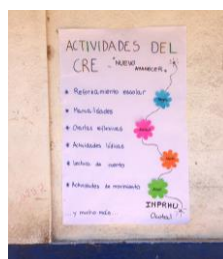 ACTIVIDADES DEL
CRE - "NUEVO AMANECER"
Reforzamiento escolar
Manualidades
Charlas reflexivas
Actividades lúdicas
Lectura de cuento
Actividades de movimiento
INPRHU
(Somoto)
y mucho más...